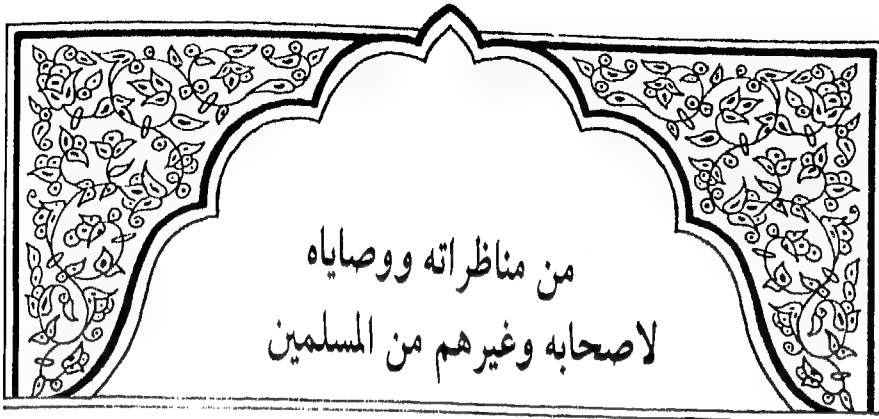 من مناظراته ووصاياه
لاصحابه وغيرهم من المسلمين